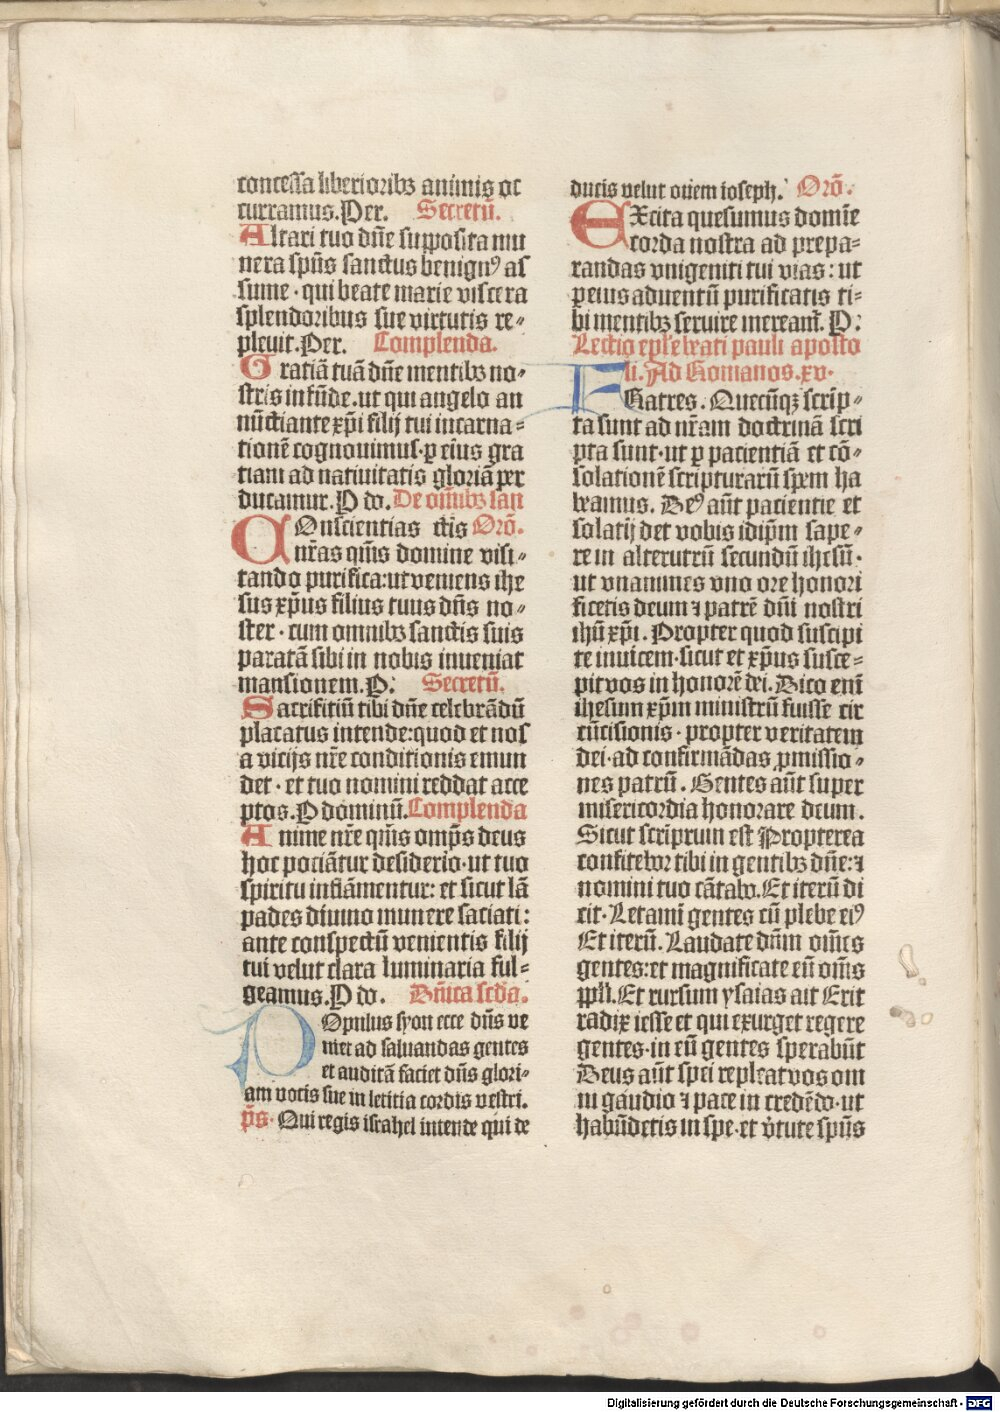 concessa liberioribꝫ animis oc
curramus. Per. Secretū.
Altari tuo dn̄e supposita mu
nera sp̄us sanctus benignꝰ as
sume · qui beate marie viscera
splendoribus sue virtutis re⸗
pleuit. Per. Complenda.
Gratiā tuā dn̄e mentibꝫ no⸗
stris infūde. ut qui angelo an
nūctiante xp̄i filij tui incarna⸗
tionē cognouimus · ꝑ eius gra
tiam ad natiuitatis gloriā per
ducamur. P do. De om̄ibꝫ san
COnscientias ctis Orō.
nr̄as qm̄s domine visi⸗
tando purifica: ut veniens ihe
sus xp̄us filius tuus dn̄s no⸗
ster · cum omnibꝫ sanctis suis
paratā sibi in nobis inueniat
mansionem. P: Secretū.
Sacrifitiū tibi dn̄e celebrādū
placatus intende: quod et nos
a vicijs nr̄e conditionis emun
det · et tuo nomini reddat acce
ptos. P dominū. Complenda
Anime nr̄e qm̄s omp̄s deus
hoc pociātur desiderio · ut tuo
spiritu inflāmentur: et sicut lā
pades diuino munere saciati:
ante conspectū venientis filij
tui velut clara luminaria ful⸗
geamus. P do. Dn̄ica scd̄a.
POpulus syon ecce dn̄s ve
niet ad saluandas gentes
et auditā faciet dn̄s glori⸗
am vocis sue in letitia cordis vestri.
p̄s. Qui regis israhel intende qui de
ducis velut ouem ioseph. Orō.
EXcita quesumus domīe
corda nostra ad prepa⸗
randas vnigeniti tui vias: ut
ꝑ eius aduentū purificatis ti⸗
bi mentibꝫ seruire mereamr̄. P:
Lectio epl̄e beati pauli aposto
li. Ad Romanos. xv.
FRatres. Quecūqꝫ scrip⸗
ta sunt ad nr̄am doctrinā scri
pta sunt · ut ꝑ pacientiā et cō⸗
solationē scripturarū spem ha
beamus. Deꝰ aūt pacientie et
solatij det vobis idip̄m sape⸗
re in alterutrū secundū ihesū ·
ut vnanimes vno ore honori
ficetis deum ⁊ patrē dn̄i nostri
ihū xp̄i. Propter quod suscipi
te inuicem · sicut et xp̄us susce⸗
pit vos in honorē dei. Dico enī
ihesum xp̄m ministrū fuisse cir
cūcisionis · propter veritatem
dei · ad confirmādas ꝓmissio⸗
nes patrū. Gentes aūt super
misericordia honorare deum.
Sicut scriptum est Propterea
confitebor tibi in gentibꝫ dn̄e: ⁊
nomini tuo cātabo. Et iterū di
cit · Letamī gentes cū plebe eiꝰ
Et iterū. Laudate dn̄m om̄es
gentes: et magnificate eū om̄s
ppl̄i. Et rursum ysaias ait Erit
radix iesse et qui exurget regere
gentes · in eū gentes sperabūt
Deus aūt spei repleat vos om
ni gaudio ⁊ pace in credēdo · ut
habūdetis in spe · et v̄tute sp̄us
Digitalisierung gefördert durch die Deutsche Forschungsgemeinschaft - DFG